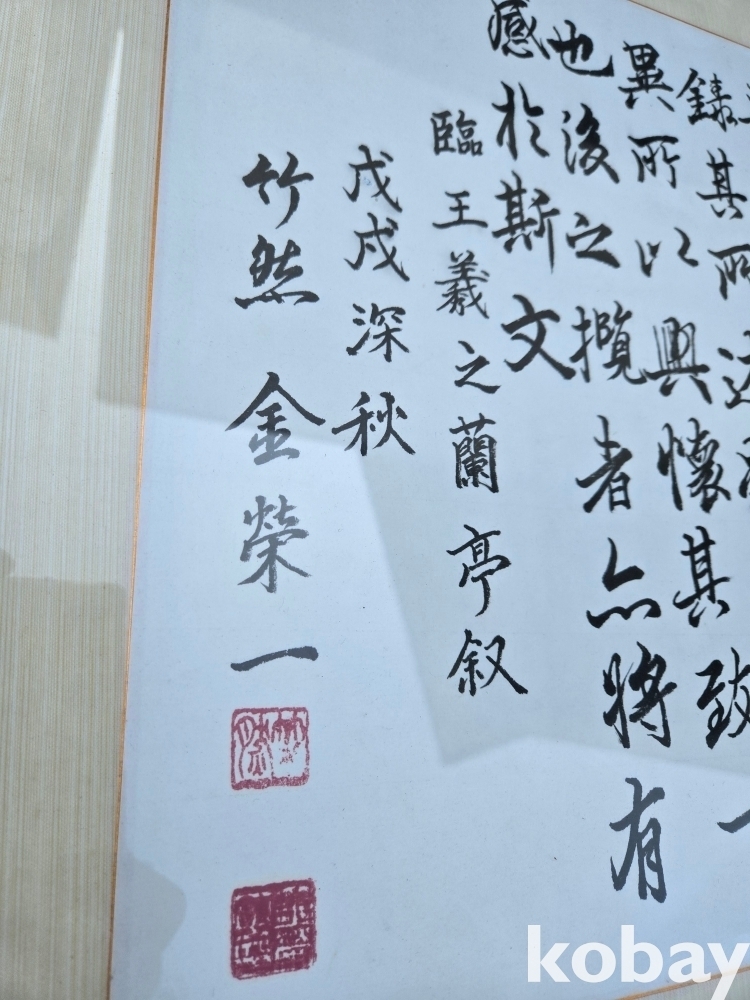 錄其所
異所以興懷其致一
也後之攬者亦將有
感於斯文
臨王羲之蘭亭叙
戊戌深秋
竹然 金榮一
竹然
kobay